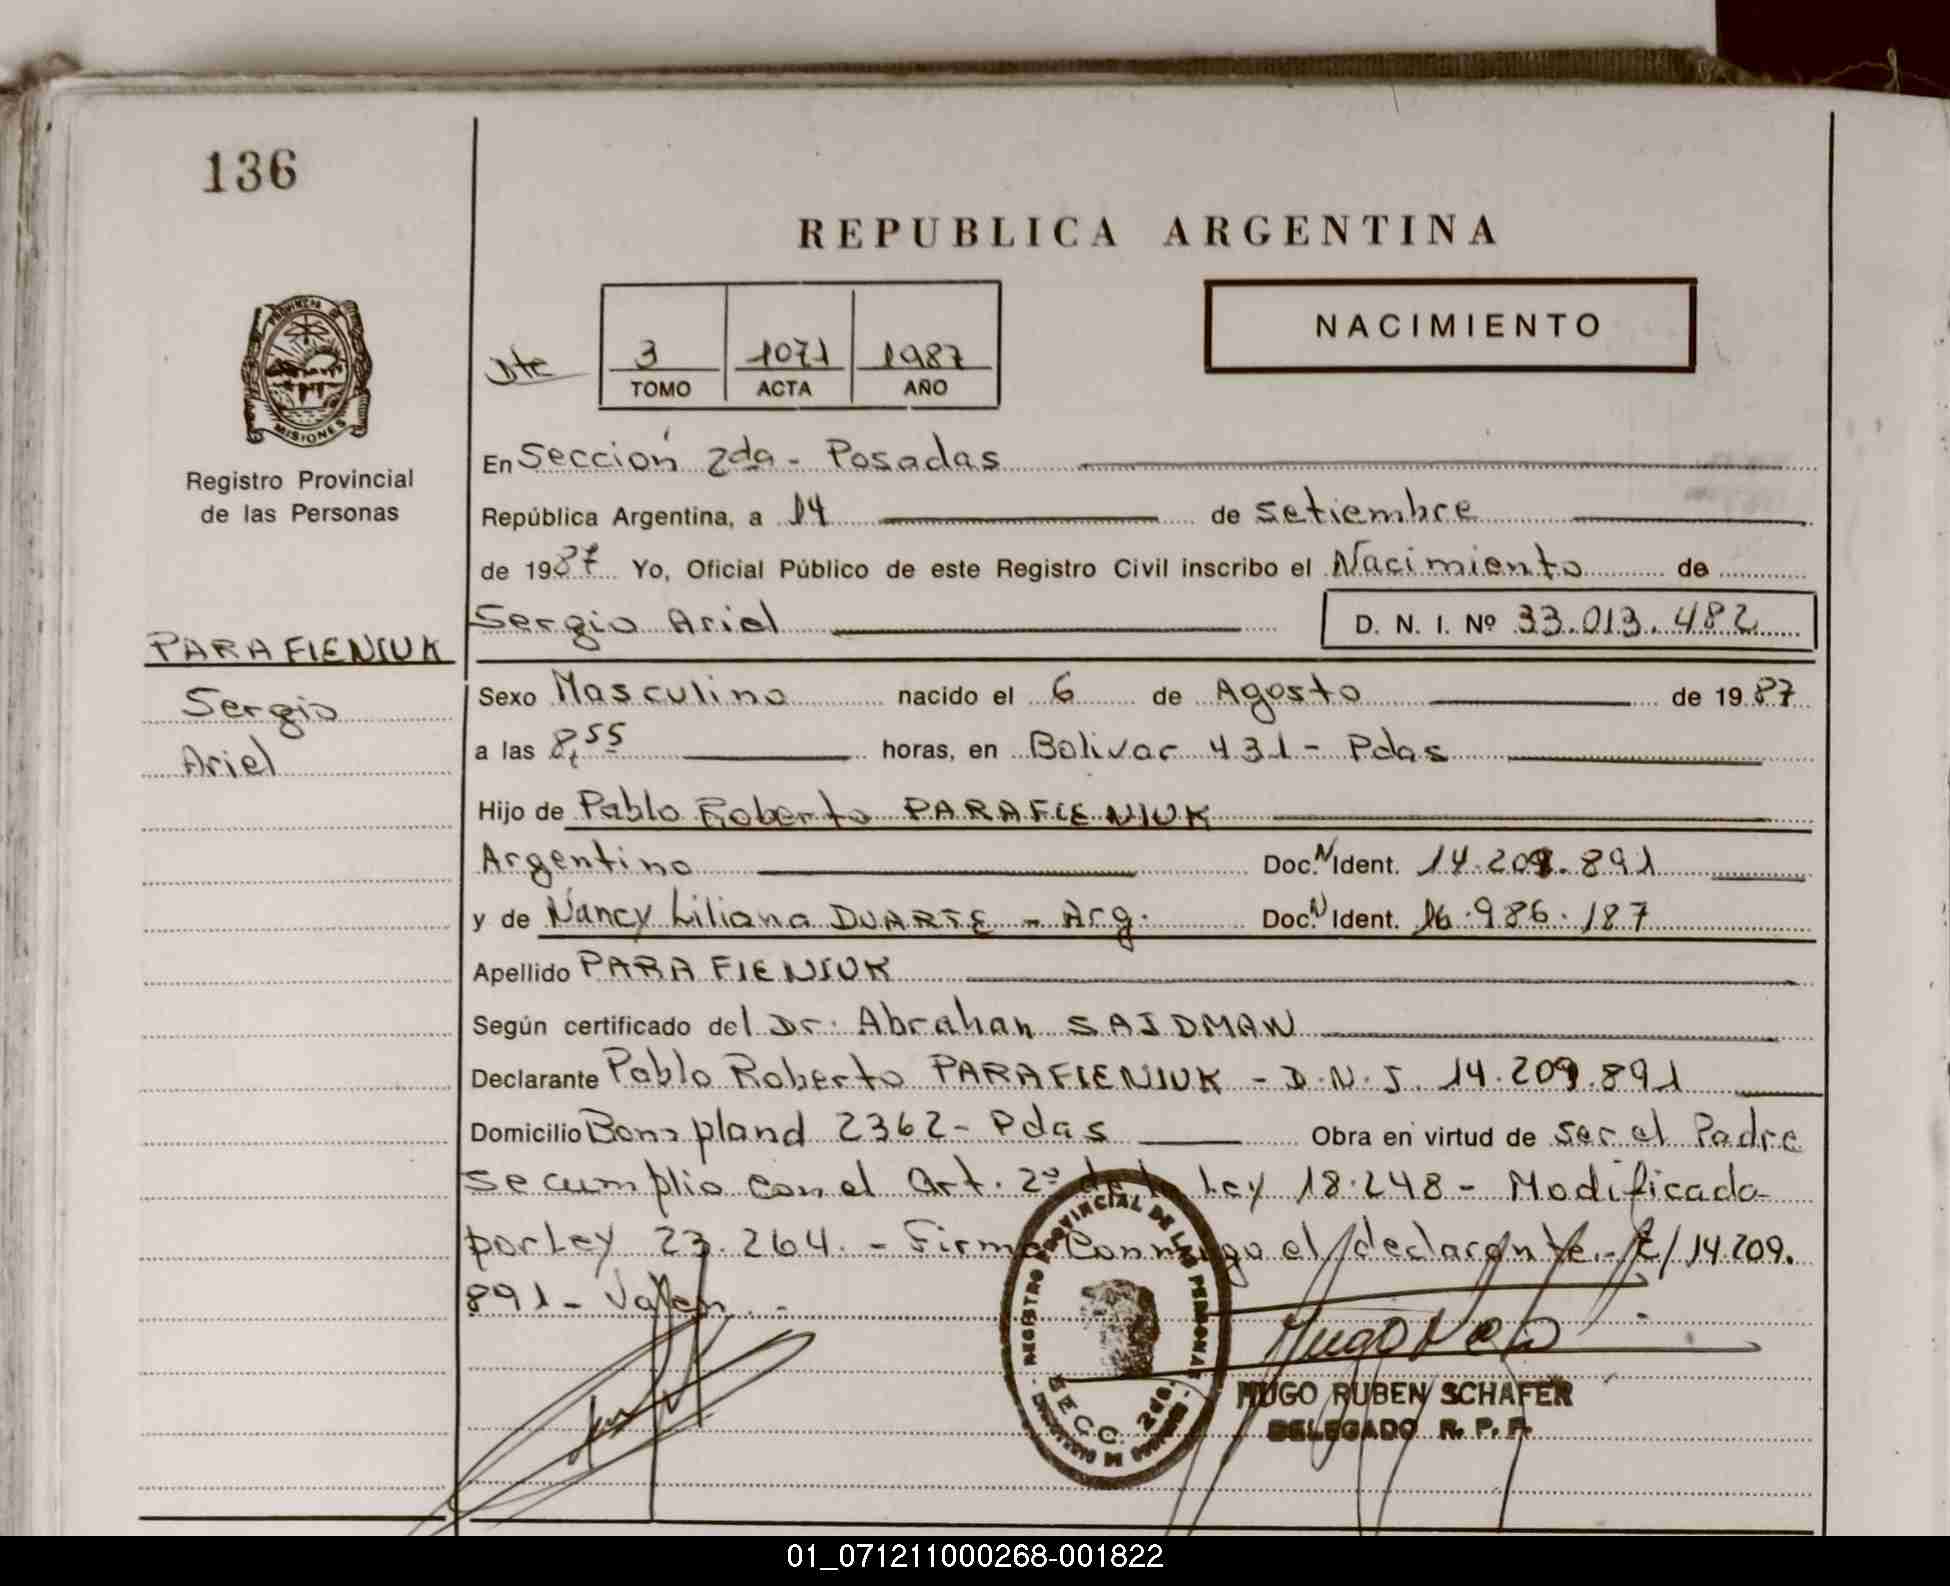 136
REPUBLICA ARGENTINA
NACIMIENTO
3 1071 1987
TOMO ACTA AÑO
PROVINCIA D
MISIONES
Registro Provincial
de las Personas
En Sección 2da - Posadas
República Argentina, a 14 de setiembre
de 1987 Yo, Oficial Público de este Registro Civil inscribo el Nacimiento de
Sergio Ariel D. N. I. Nº 33.013.482
PARAFIENIUK
Sergio
Ariel
Sexo Masculino nacido el 6 de Agosto de 1987
a las 8,55 horas, en Bolivar 431 - Pdas
Hijo de Pablo Roberto PARAFIENIUK
Argentino Doc. N Ident. 14.209.891
y de Nancy Liliana DUARTE - Arg. Doc. N Ident. 16.986.187
Apellido PARAFIENIUK
Según certificado del Dr. Abrahan SAIDMAN
Declarante Pablo Roberto PARAFIENIUK - D.N.I. 14.209.891
Domicilio Bonpland 2362 - Pdas Obra en virtud de ser el Padre
se cumplio con el Art. 2º de la Ley 18.248 - Modificada
por Ley 23.264. - Firma Conmigo el declarante. - E/ 14.209.
891 - Valen. -
REGISTRO PROVINCIAL DE LAS PERSONAS
SECC. 2da.
HUGO RUBEN SCHAFER
DELEGADO R. P. P.
01_071211000268-001822